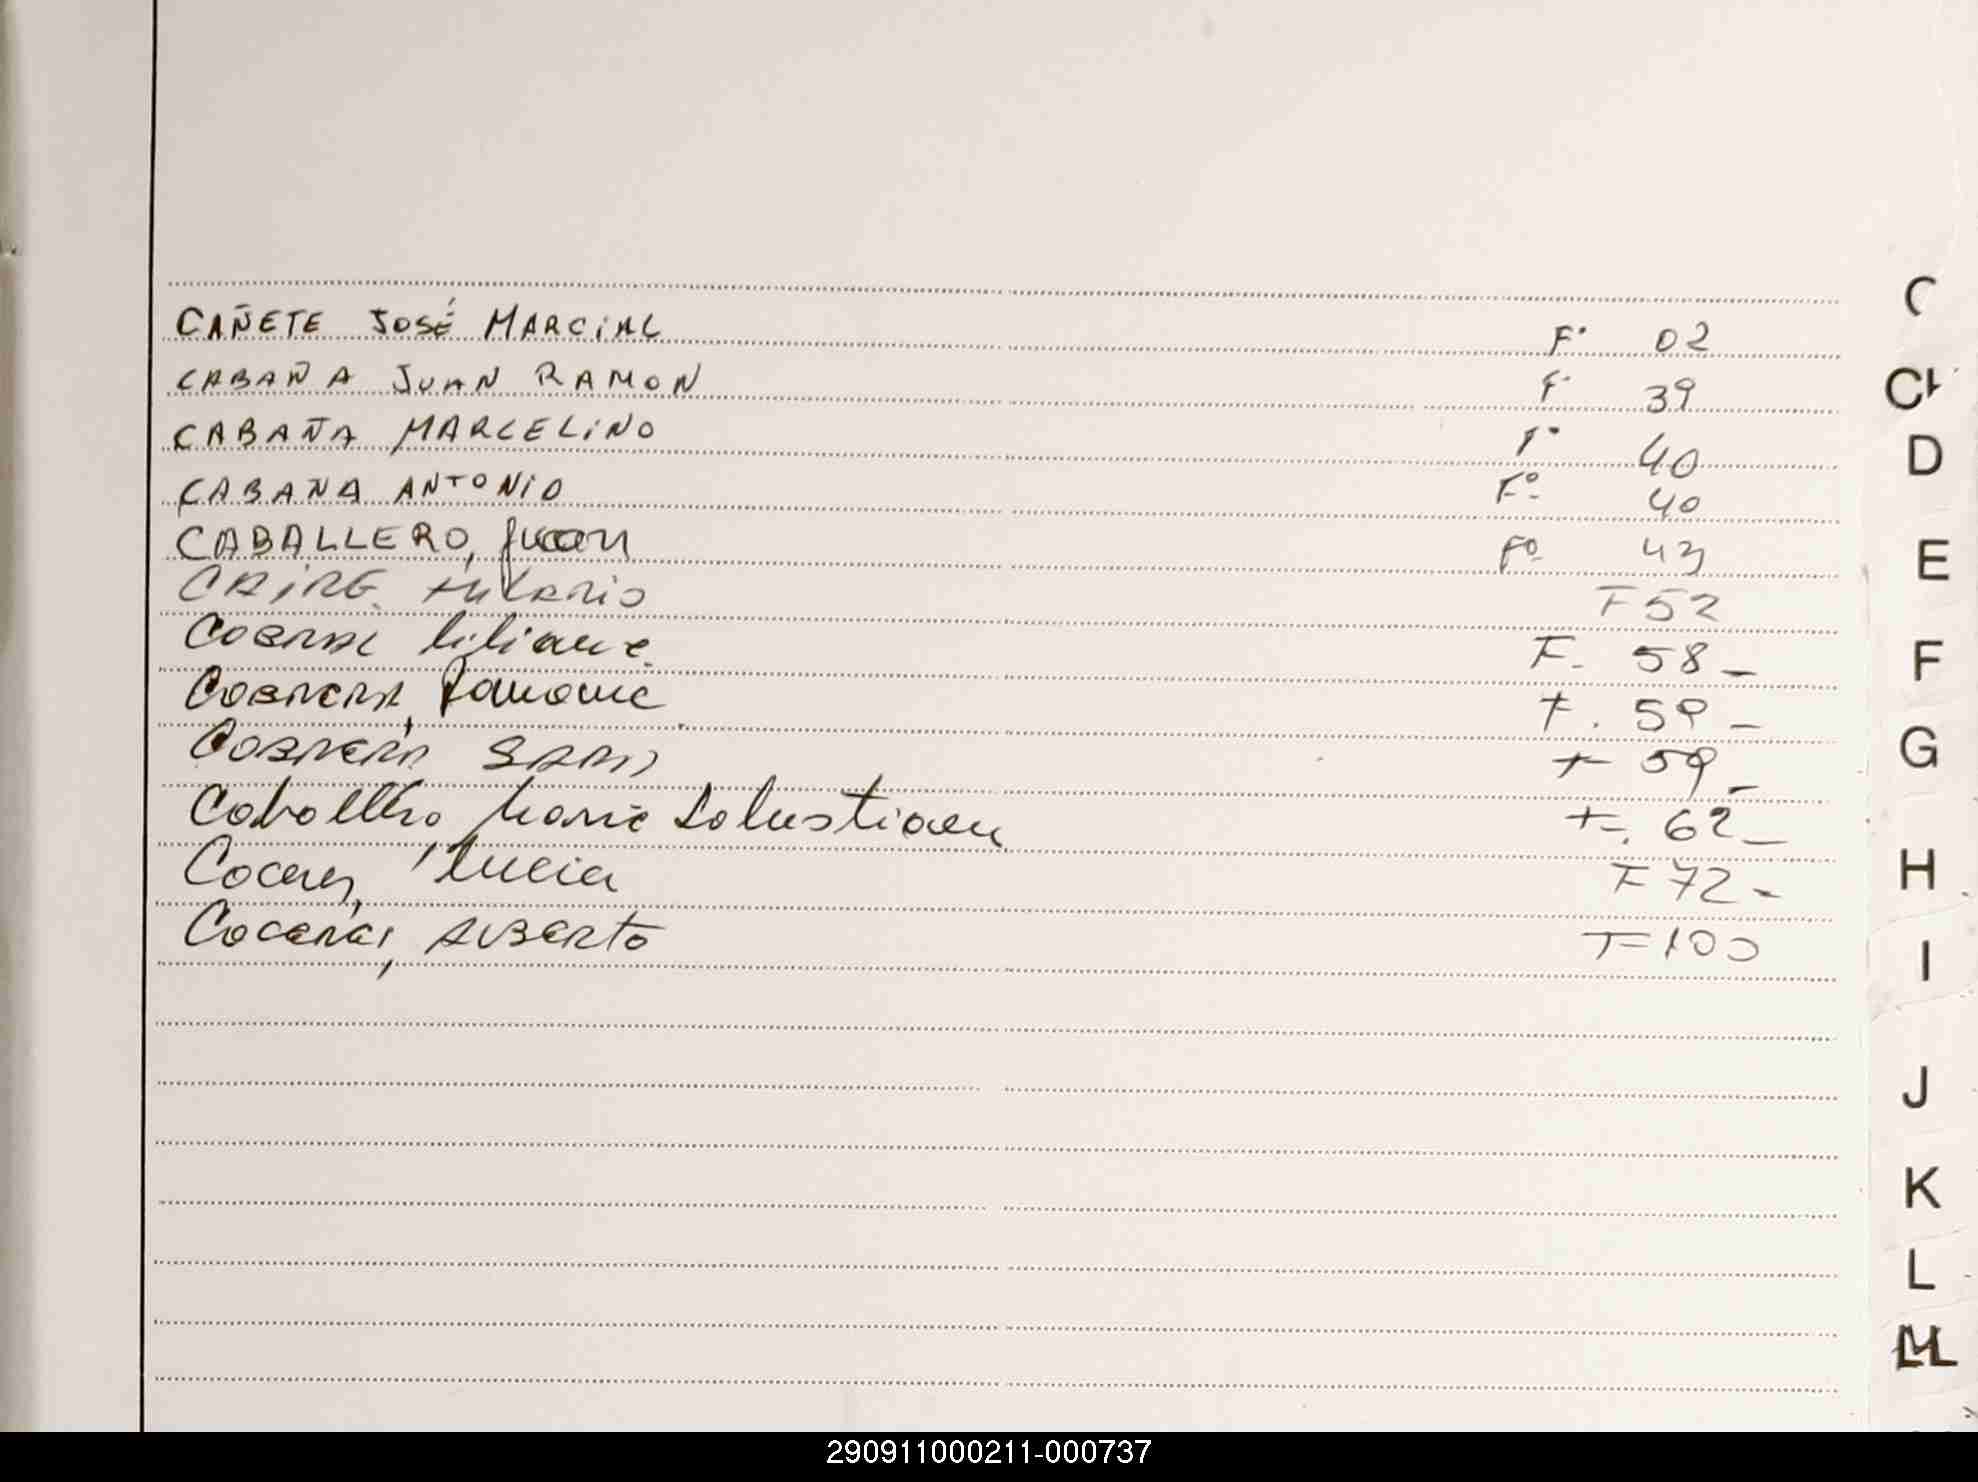 CAÑETE JOSÉ MARCIAL F° 02
CABAÑA JUAN RAMON F° 39
CABAÑA MARCELINO F° 40
CABAÑA ANTONIO Fº 40
CABALLERO, Juan Fº 43
Hilario F 52
Liliana F. 58 -
Cabrera, Ramona F. 59 -
Cabrera F 59 -
Caballero, Maria Salustiana F. 62 -
Caceres, Lucia F 72 -
Caceres, Alberto F 100
C
CH
D
E
F
G
H
I
J
K
L
LL
290911000211-000737